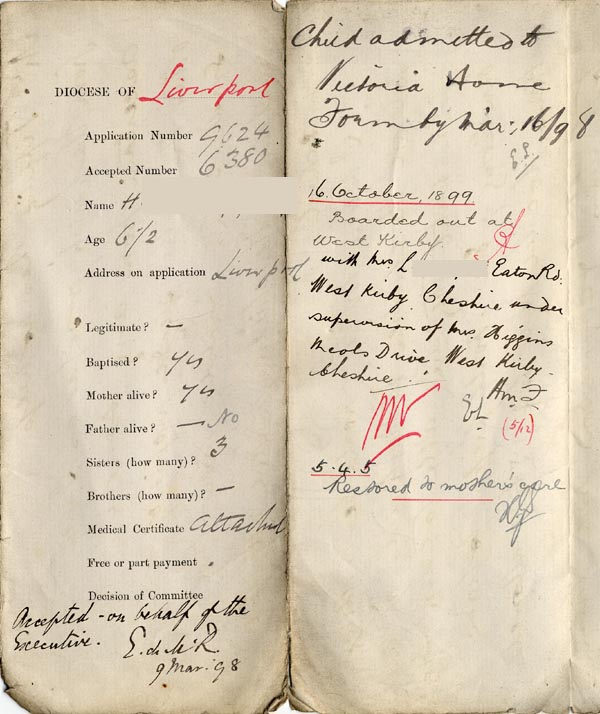 DIOCESE OF Liverpool
Application Number 9624
Accepted Number 6380
Name H.
Age 6 1/2
Address on application Liverpool
Legitimate? —
Baptised? yes
Mother alive? yes
Father alive? — No
Sisters (how many)? 3
Brothers (how many)? —
Medical Certificate attached
Free or part payment .
Decision of Committee
Accepted - on behalf of the
Executive. E. de M. R.
9 Mar: 98
Child admitted to
Victoria Home
Formby Mar: 16/98
16. October, 1899.
Boarded out at
West Kirby.
with Mrs. L Eaton Rd.
West Kirby Cheshire under
supervision of Mrs. Higgins
Meols Drive West Kirby-
Cheshire.
(5/12)
5.4.5
Restored to mother's care